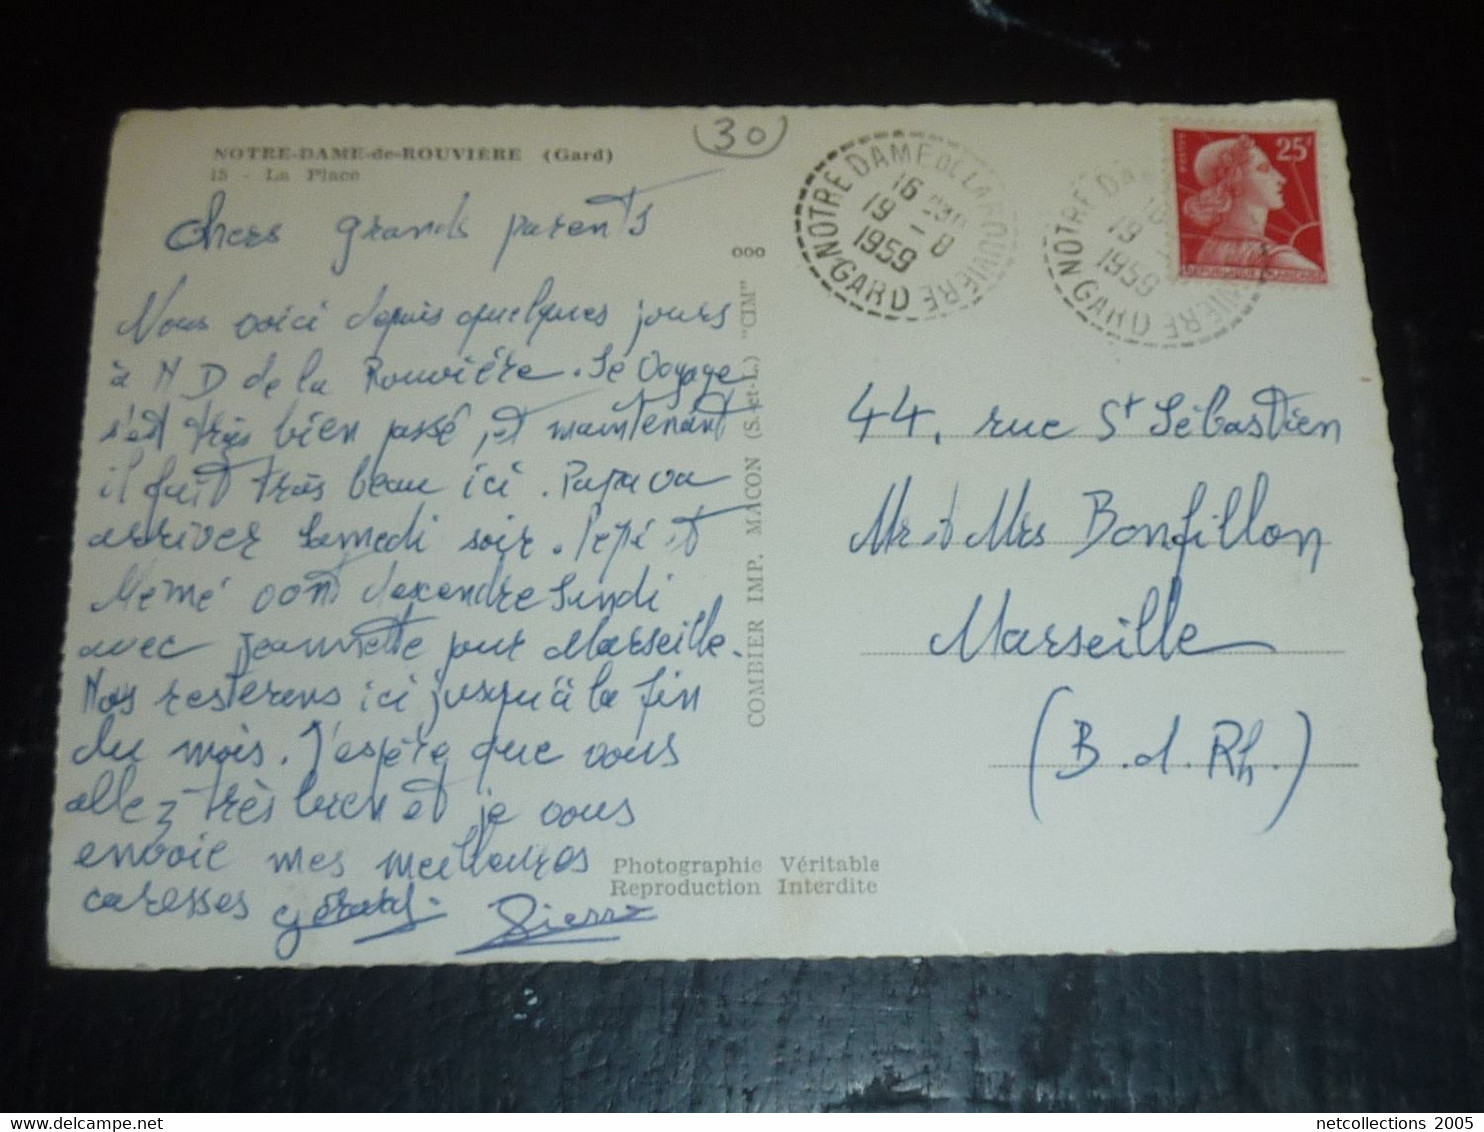 NOTRE-DAME-de-ROUVIÈRE (Gard)
15 - La Place
30
Chers grands parents
Nous voici depuis quelques jours
à N D de la Rouvière. Le Voyage
s'est très bien passé, et maintenant
il fait très beau ici. Papa va
arriver Samedi soir. Pépé et
Mémé vont descendre Lundi
avec Jeannette pour Marseille.
Nous resterons ici jusqu'à la fin
du mois. J'espère que vous
allez très bien et je vous
envoie mes meilleures
caresses Gérard. Pierre
ooo
COMBIER IMP. MACON (S.-et-L.) "CIM"
Photographie Véritable
Reproduction Interdite
NOTRE DAME DE LA ROUVIERE
16
19 - 8
1959
GARD
NOTRE DA
16
19
1959
GARD
VIERE
POSTES
25F
REPUBLIQUE FRANÇAISE
44, rue St Sébastien
Mr et Mrs Bonfillon
Marseille
(B. d. Rh.)
netcollections 2005